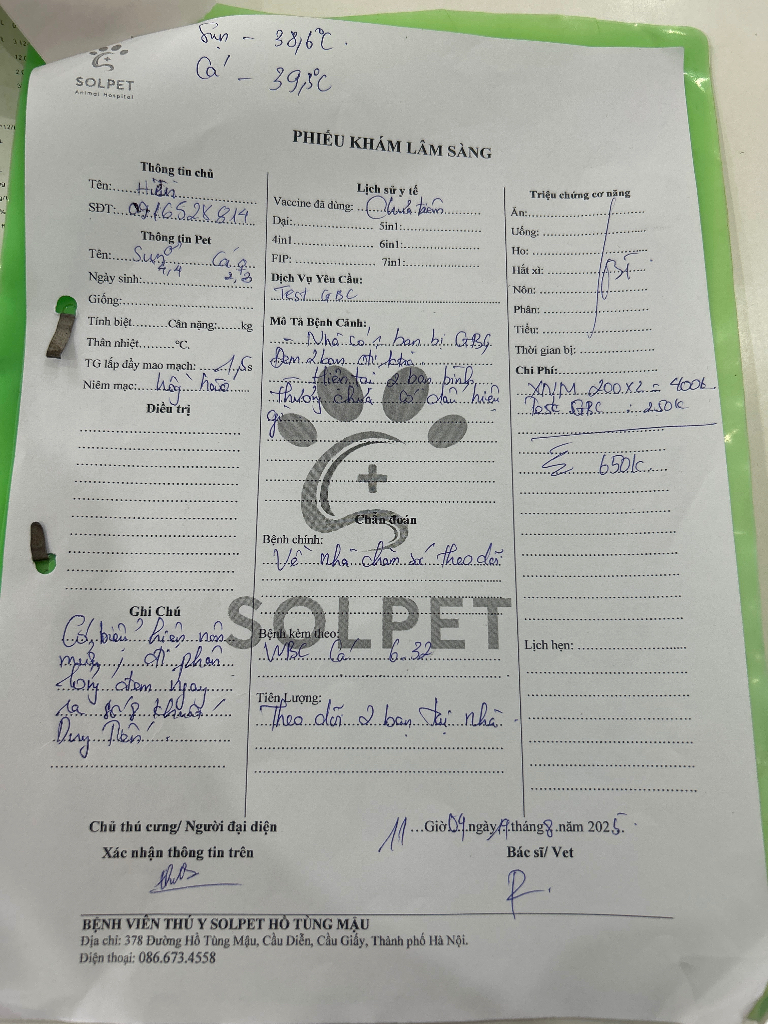 Sụn - 38,6°C.
Cá - 39,3°C
SOLPET
Animal Hospital
PHIẾU KHÁM LÂM SÀNG
Thông tin chủ
Tên: Hiền
SĐT: 0916528814
Thông tin Pet
Tên: Sụn Cá
4,4 2,3
Ngày sinh:
Giống:
Tính biệt Cân nặng: kg
Thân nhiệt °C.
TG lấp đầy mao mạch: 1,5s
Niêm mạc: hồng hào
Điều trị
Ghi Chú
Có biểu hiện nôn
mửa, đi phân
lỏng đem ngay
ra số 8 khuất
Duy Tiến.
Lịch sử y tế
Vaccine đã dùng: Chưa tiêm
Dại: 5in1:
4in1 6in1:
FIP: 7in1:
Dịch Vụ Yêu Cầu:
Test GBC
Mô Tả Bệnh Cảnh:
- Nhà có 1 bạn bị GBC,
Đem 2 bạn đi ktra
- Hiện tại 2 bạn bình
thường chưa có dấu hiệu
gì
Chẩn đoán
Bệnh chính:
Về nhà chăm sóc theo dõi
SOLPET
Bệnh kèm theo:
WBC Cá 6.32
Tiên Lượng:
Theo dõi 2 bạn tại nhà.
Triệu chứng cơ năng
Ăn:
Uống:
Ho:
Hắt xì: BT
Nôn:
Phân:
Tiểu:
Thời gian bị:
Chi Phí:
XNM 200x2 = 400k
Test GBC : 250k
Σ 650k
Lịch hẹn:
Chủ thú cưng/ Người đại diện
Xác nhận thông tin trên
11 Giờ 09 ngày 19 tháng 8 năm 2025.
Bác sĩ/ Vet
BỆNH VIỆN THÚ Y SOLPET HỒ TÙNG MẬU
Địa chỉ: 378 Đường Hồ Tùng Mậu, Cầu Diễn, Cầu Giấy, Thành phố Hà Nội.
Điện thoại: 086.673.4558